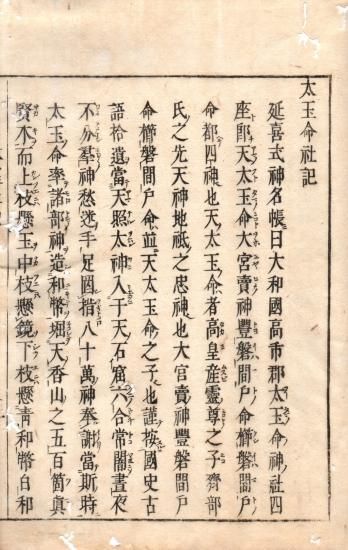 太玉命社記
延喜式神名帳曰大和國高市郡太玉命神社四
座郎天太玉命大宮賣神豐磐間戶命櫛磐間戶
命都四神也天太玉命者高皇産靈尊之子齊部
氏之先天神地祇之忠神也大宮賣神豐磐間戶
命櫛磐間戶命並天太玉命之子也謹按國史古
語拾遺當天照太神入于天石窟六合常闇晝夜
不分羣神愁迷手足罔措八十萬神奉謝當斯時
太玉命率諸部神造和幣堀天香山之五百箇眞
賢木而上枝懸玉中枝懸鏡下枝懸青和幣白和